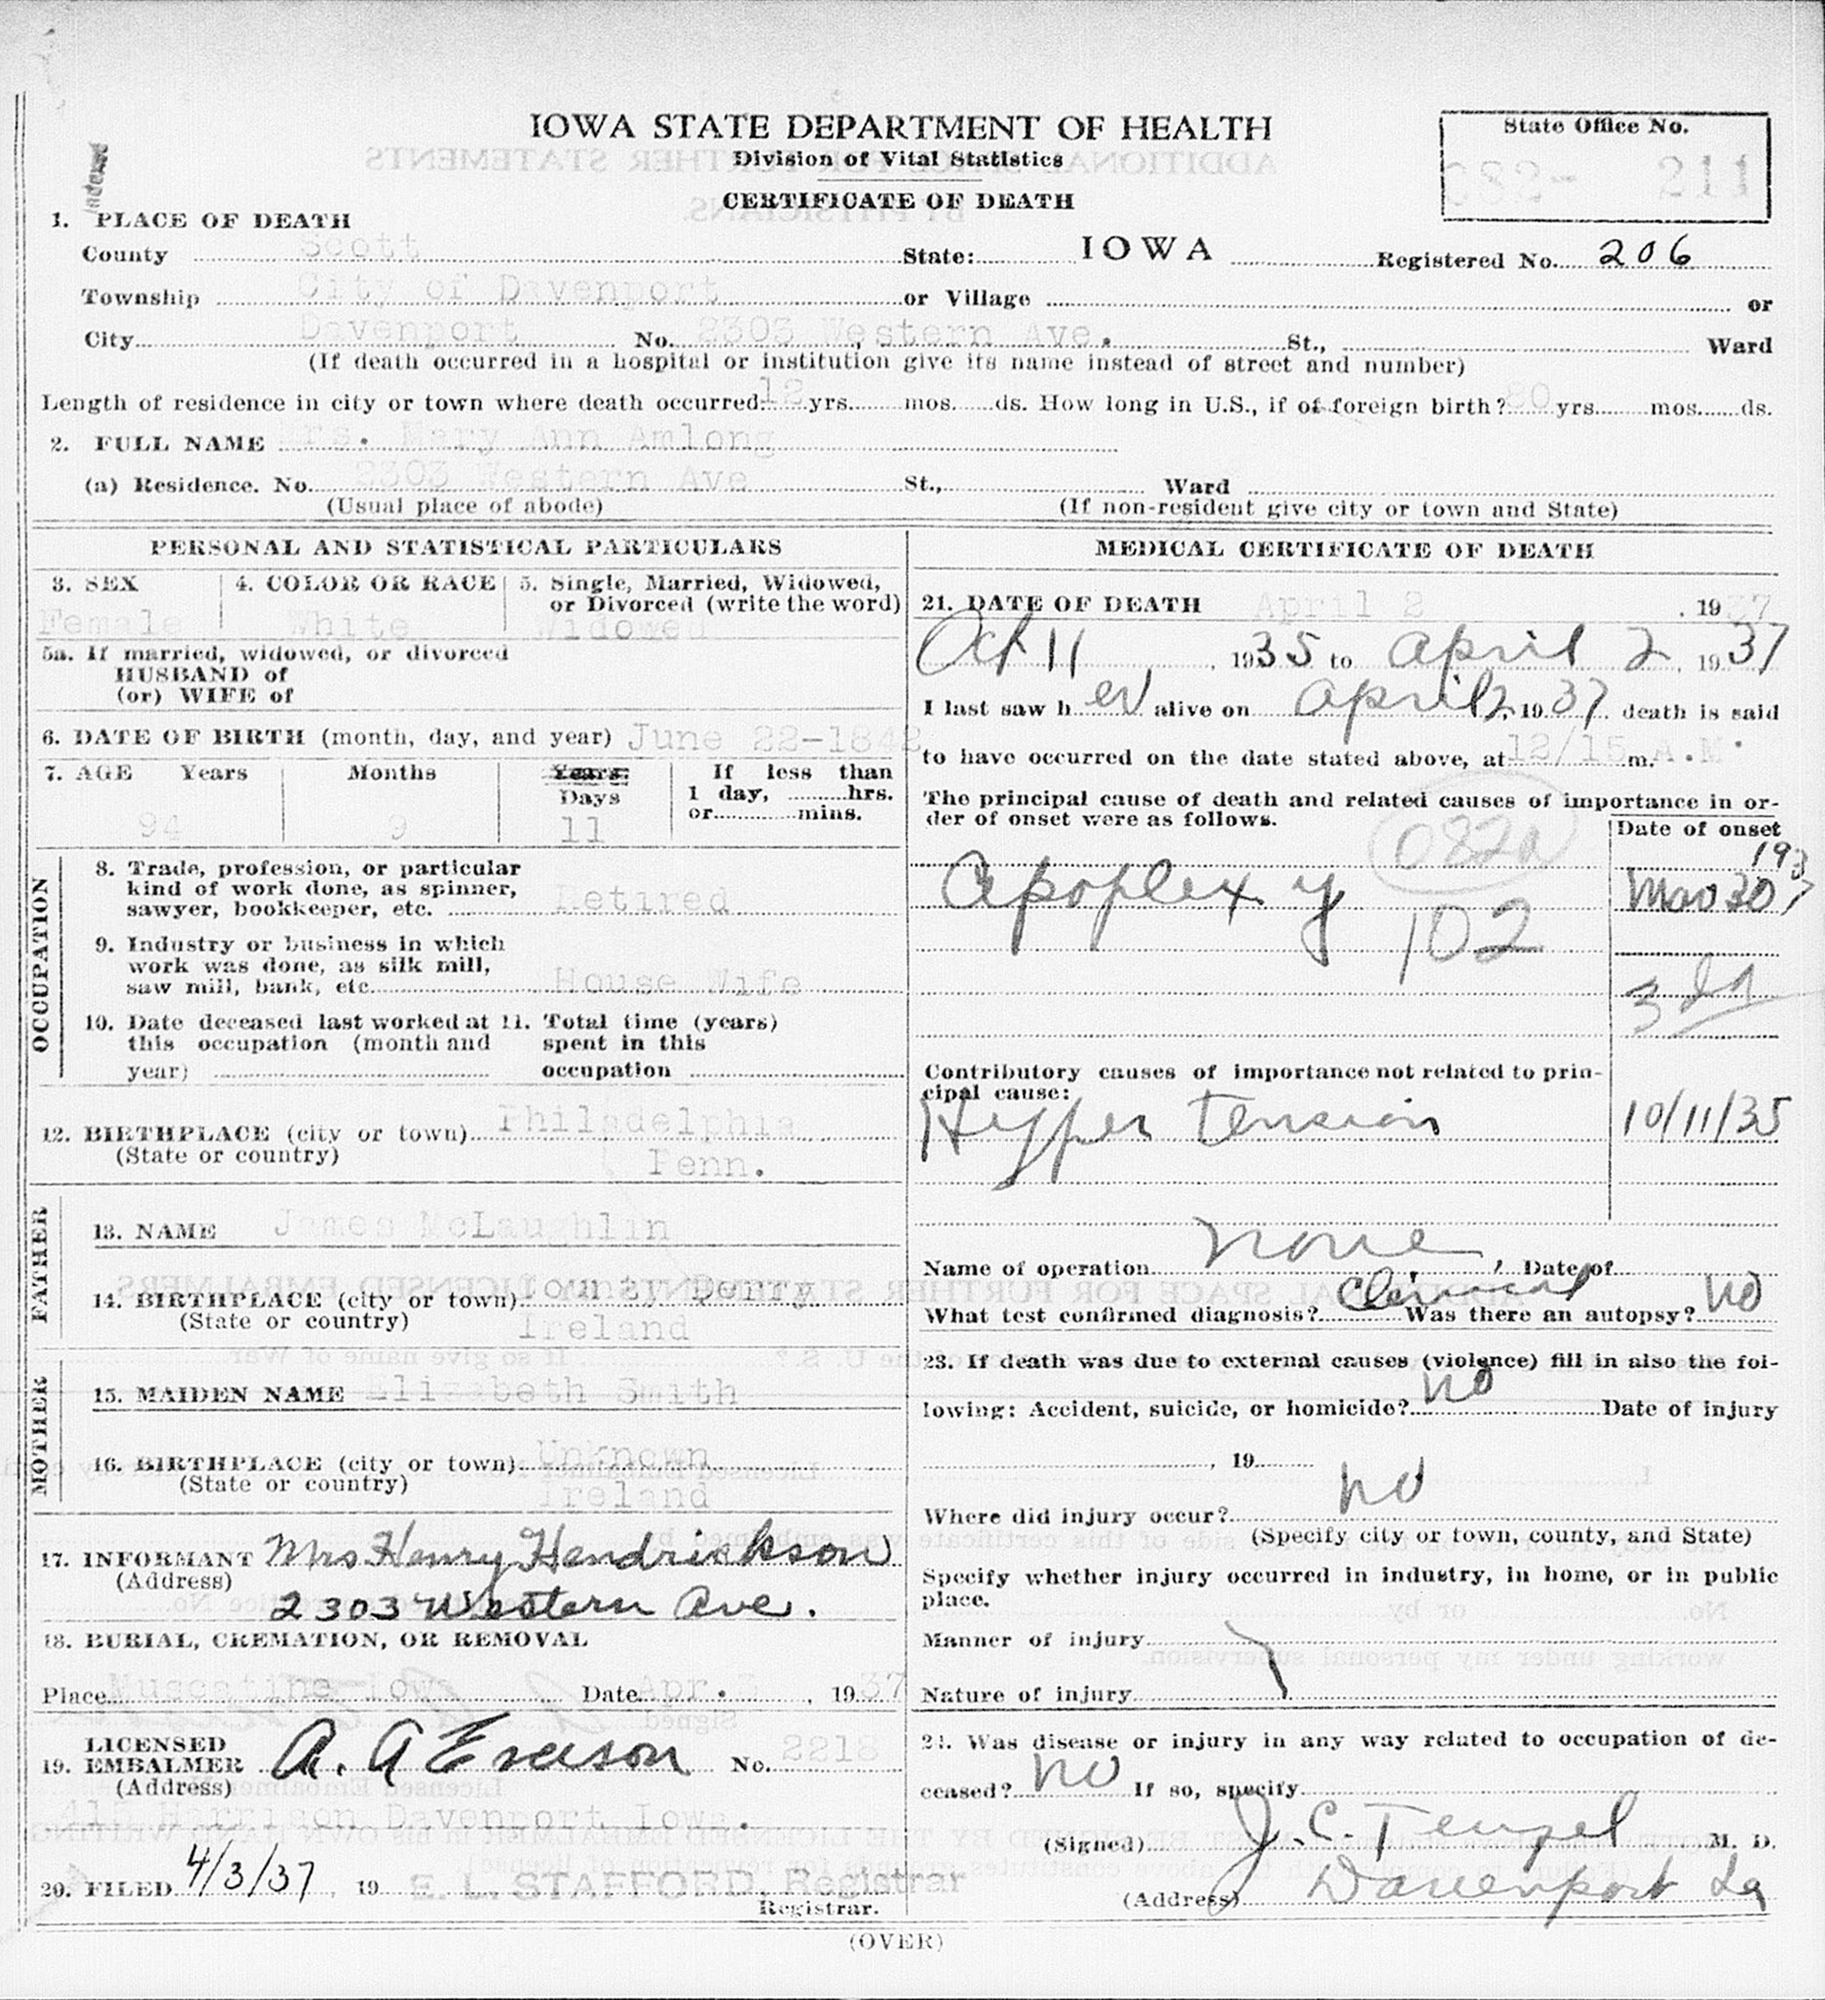 IOWA STATE DEPARTMENT OF HEALTH
Division of Vital Statistics
CERTIFICATE OF DEATH
State Office No.
082- 211
1. PLACE OF DEATH
County Scott State: IOWA Registered No. 206
Township City of Davenport or Village or
City Davenport No. 2303 Western Ave. St., Ward
(If death occurred in a hospital or institution give its name instead of street and number)
Length of residence in city or town where death occurred 12 yrs. mos. ds. How long in U.S., if of foreign birth? 80 yrs. mos. ds.
2. FULL NAME rs. Mary Ann Amlong
(a) Residence. No. 2303 Western Ave St., Ward
(Usual place of abode) (If non-resident give city or town and State)
PERSONAL AND STATISTICAL PARTICULARS
3. SEX 4. COLOR OR RACE 5. Single, Married, Widowed,
or Divorced (write the word)
Female White Widowed
5a. If married, widowed, or divorced
HUSBAND of
(or) WIFE of
6. DATE OF BIRTH (month, day, and year) June 22-1842
7. AGE Years Months Years: If less than
Days 1 day, hrs.
or mins.
94 9 11
OCCUPATION
8. Trade, profession, or particular
kind of work done, as spinner,
sawyer, bookkeeper, etc. Retired
9. Industry or business in which
work was done, as silk mill,
saw mill, bank, etc. House Wife
10. Date deceased last worked at 11. Total time (years)
this occupation (month and spent in this
year) occupation
12. BIRTHPLACE (city or town) Philadelphia
(State or country) Penn.
FATHER
13. NAME James McLaughlin
14. BIRTHPLACE (city or town) County Derry
(State or country) Ireland
MOTHER
15. MAIDEN NAME Elizabeth Smith
16. BIRTHPLACE (city or town) Unknown
(State or country) Ireland
17. INFORMANT Mrs Henry Hendrickson
(Address) 2303 Western Ave.
18. BURIAL, CREMATION, OR REMOVAL
Place Muscatine Iowa Date Apr. 19 37
LICENSED
19. EMBALMER A. A No. 2218
(Address)
Harrison Davenport Iowa.
20. FILED 4/3/37 19 E. L. STAFFORD, Registrar
Registrar.
MEDICAL CERTIFICATE OF DEATH
21. DATE OF DEATH April 2, 19 37
Oct 11, 1935 to April 2, 1937
I last saw her alive on April 2, 1937 death is said
to have occurred on the date stated above, at 12/15 m. A.M.
The principal cause of death and related causes of importance in or-
der of onset were as follows.
Date of onset
082a
Apoplexy 30 1937
102
3 da
Contributory causes of importance not related to prin-
cipal cause:
Hyper tension 10/11/35
Name of operation none, Date of
What test confirmed diagnosis? Clinical Was there an autopsy? no
23. If death was due to external causes (violence) fill in also the fol-
lowing: Accident, suicide, or homicide? no Date of injury
, 19
Where did injury occur? no
(Specify city or town, county, and State)
Specify whether injury occurred in industry, in home, or in public
place.
Manner of injury
Nature of injury
24. Was disease or injury in any way related to occupation of de-
ceased? no If so, specify
(Signed) J. C. Teufel M. D.
(Address) Davenport Ia
(OVER)